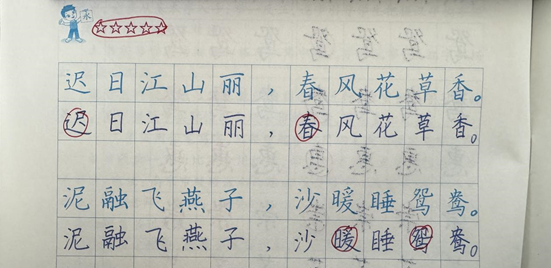 迟日江山丽，春风花草香。
迟日江山丽，春风花草香。
泥融飞燕子，沙暖睡鸳鸯。
泥融飞燕子，沙暖睡鸳鸯。